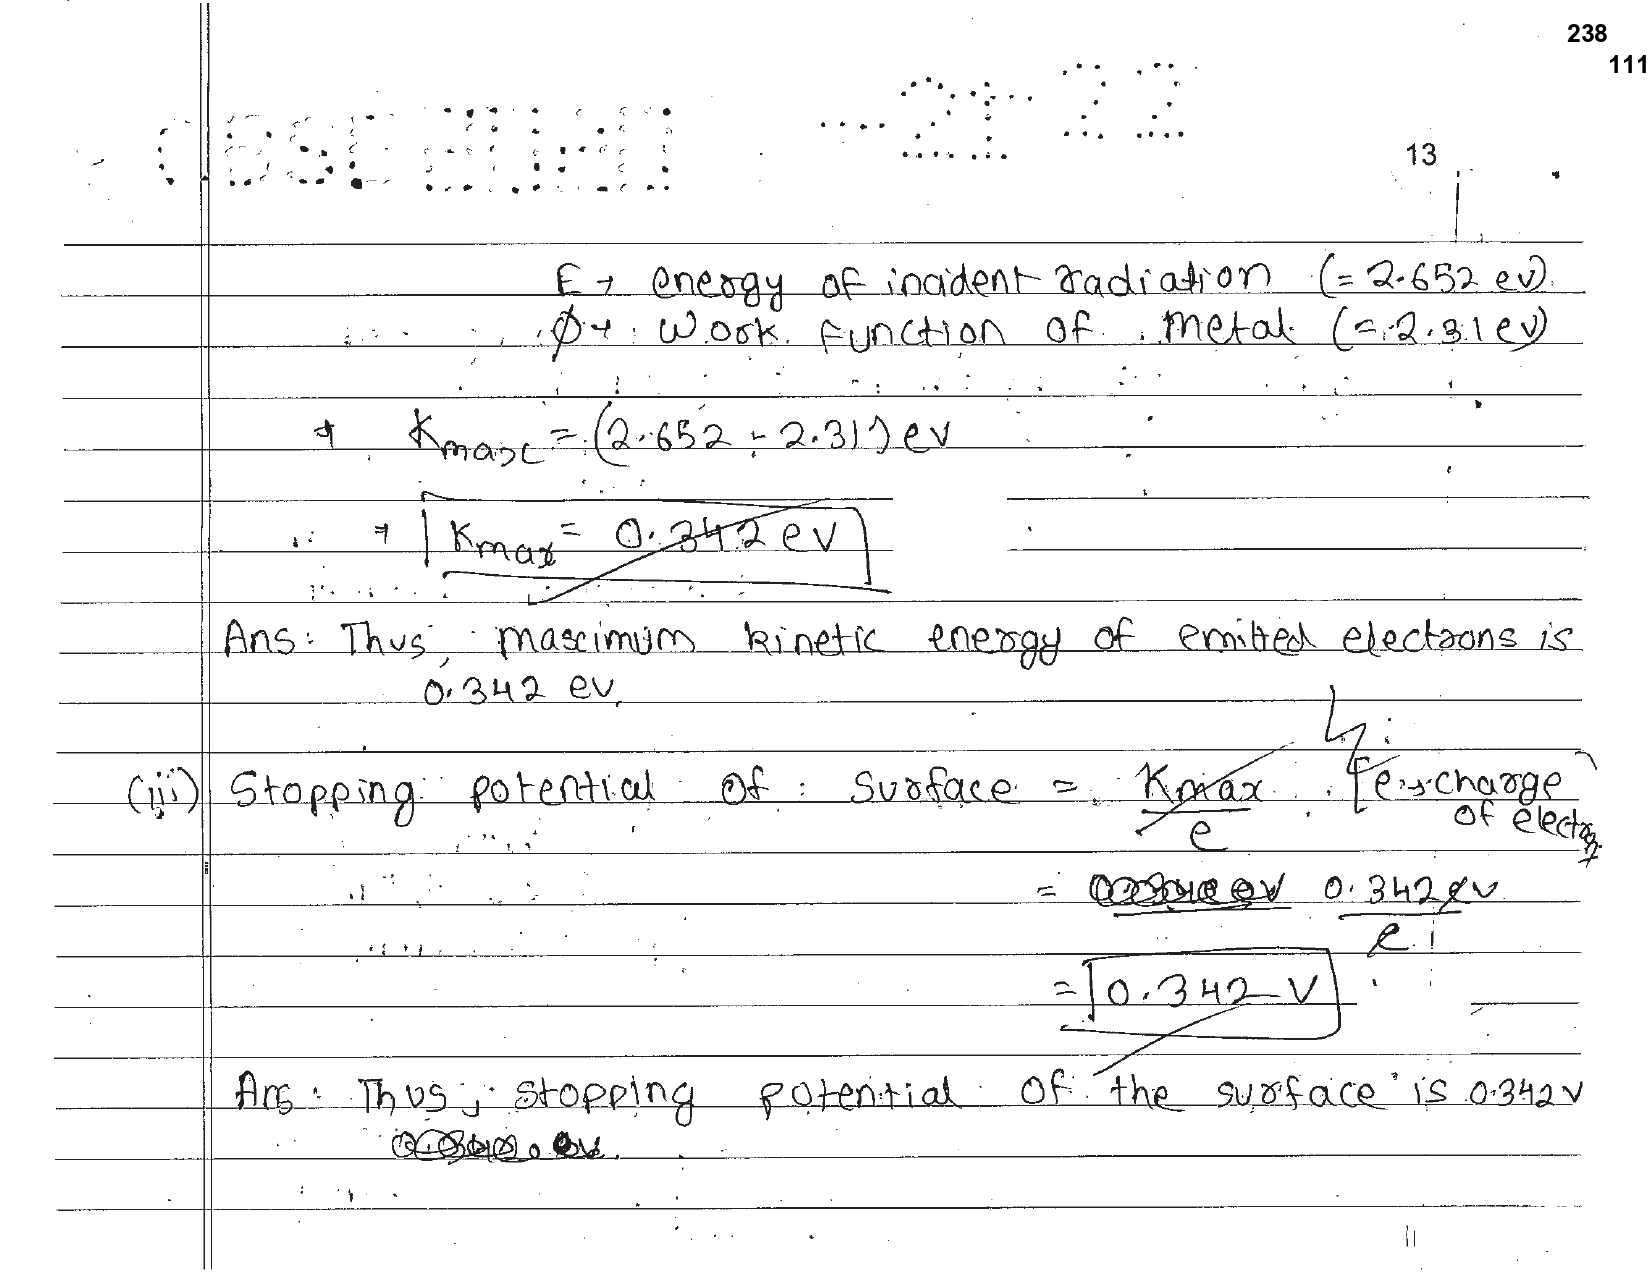 238
111
13
E → energy of incident radiation (= 2.652 ev).
Ø → Work function of metal (= 2.31 ev)
→ Kmax = (2.652 - 2.31) ev
→ Kmax = 0.342 ev
Ans: Thus, maximum kinetic energy of emitted electrons is
0.342 ev.
(iii) Stopping potential of surface = Kmax / e [e → charge of electron]
= 0.342 ev / e
= 0.342 V
Ans: Thus, stopping potential of the surface is 0.342 V